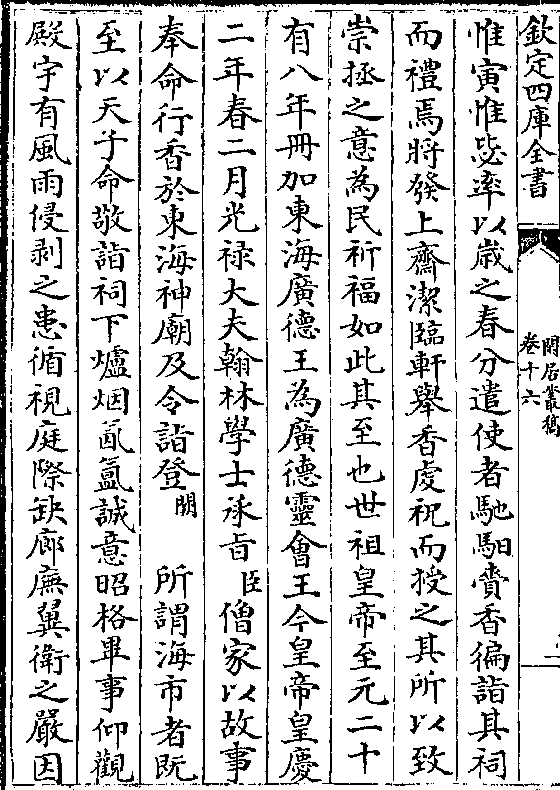 欽定四庫全書
閒居叢稿
卷十六
惟寅惟毖率以歲之春分遣使者馳馹賷香徧詣其祠
而禮焉將發上齋潔臨軒舉香虔祝而授之其所以致
崇拯之意為民祈福如此其至也世祖皇帝至元二十
有八年冊加東海廣德王為廣德靈會王今皇帝皇慶
二年春二月光禄大夫翰林學士承旨臣僧家以故事
奉命行香於東海神廟及令詣登闕 所謂海市者既
至以天子命敬詣祠下爐烟氤氳誠意昭格畢事仰觀
殿宇有風雨侵剥之患循視庭際缺廊廡翼衛之嚴因